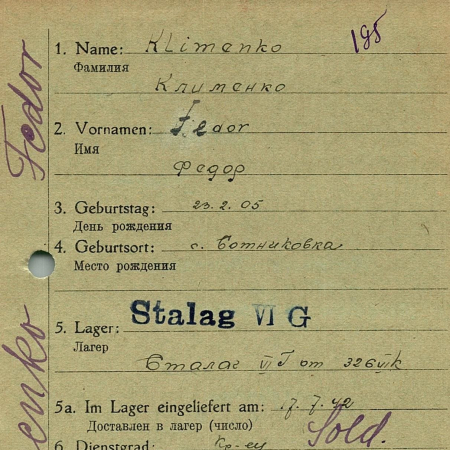 195
1. Name: Klimenko
Фамилия
Клименко
2. Vornamen: Fedor
Имя
Федор
3. Geburtstag: 23.2.05
День рождения
4. Geburtsort: с. Ботниковка
Место рождения
5. Lager: Stalag VI G
Лагер
Сталаг VI J от 326 VI K
5a. Im Lager eingeliefert am: 17.7.42
Доставлен в лагер (число)
6. Dienstgrad: Кр-ец
Sold.
Fedor
enko